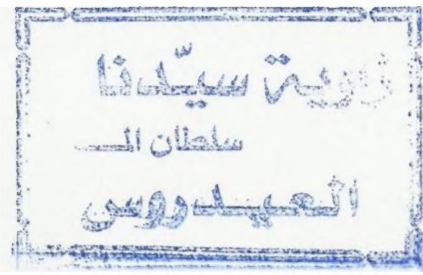 زاوية سيّدنا
سلطان المـــ
العيـــدروس